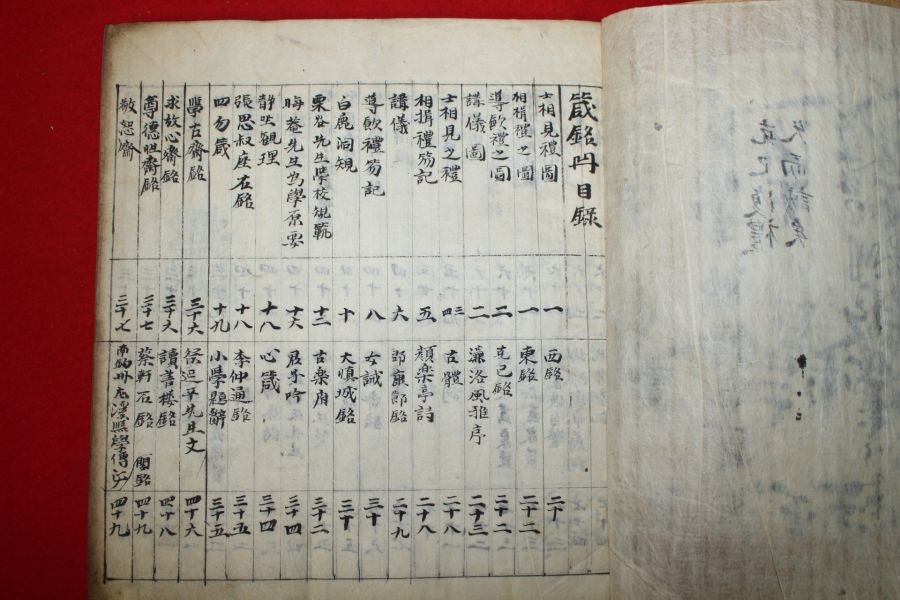 箴銘冊目錄
士相見禮圖 一 西銘 二十
相揖禮之圖 一 東銘 二十二
導軟禮之圖 二 克己銘 二十二
講儀圖 二 濂洛風雅序 二十三
士相見之禮 三四 古體 二十八
相揖禮笏記 五 顏樂亭詩 二十八
講儀 六 銘 二十九
導軟禮笏記 八 女誡 三十
白鹿洞規 十 大慎城銘 三十
栗谷先生學校規範 十二 古樂府 三十二
晦菴先生爲學原要 十六 君子吟 三十四
靜坐觀理 十八 心箴 三十四
張思叔座右銘 十八 李仲通銘 三十五
四勿箴 十九 小學題辭 三十五
學古齋銘 三十六 延平先生文 四十六
求放心齋銘 三十六 讀書樓銘 四十八
尊德性齋銘 三十七 蔡軒石銘 四十九
敬恕齋 三十七 四十九